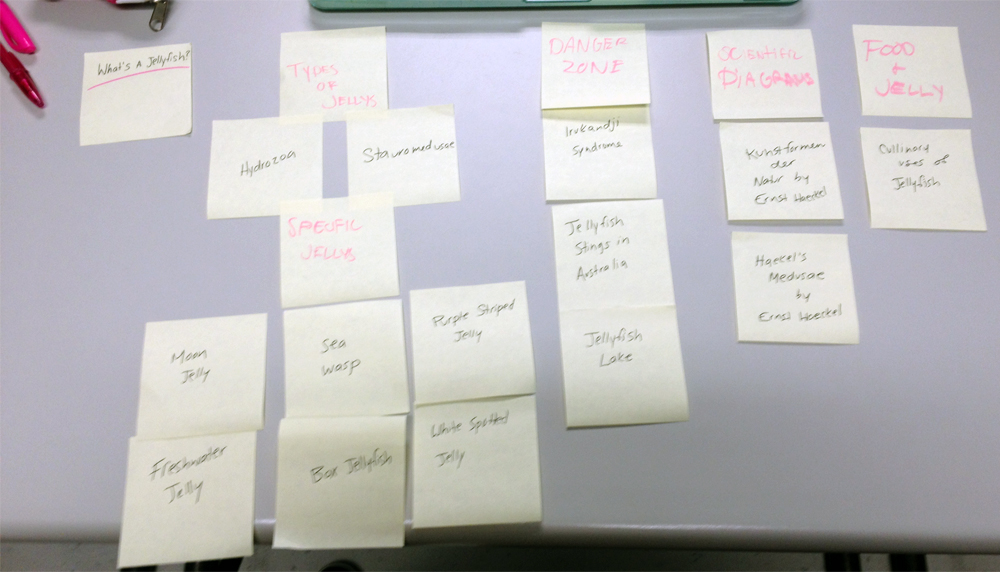 What's A Jellyfish?
TYPES
OF
JELLYS
Hydrozoa
Stauromedusae
SPECIFIC
JELLYS
Moon
Jelly
Sea
Wasp
Purple Striped
Jelly
Freshwater
Jelly
Box Jellyfish
White Spotted
Jelly
DANGER
ZONE
Irukandji
Syndrome
Jellyfish
Stings in
Australia
Jellyfish
Lake
SCIENTIFIC
DIAGRAMS
Kunstformen
der
Natur by
Ernst Haeckel
Haekel's
Medusae
by
Ernst Haeckel
FOOD
+
JELLY
Cullinary
uses of
Jellyfish